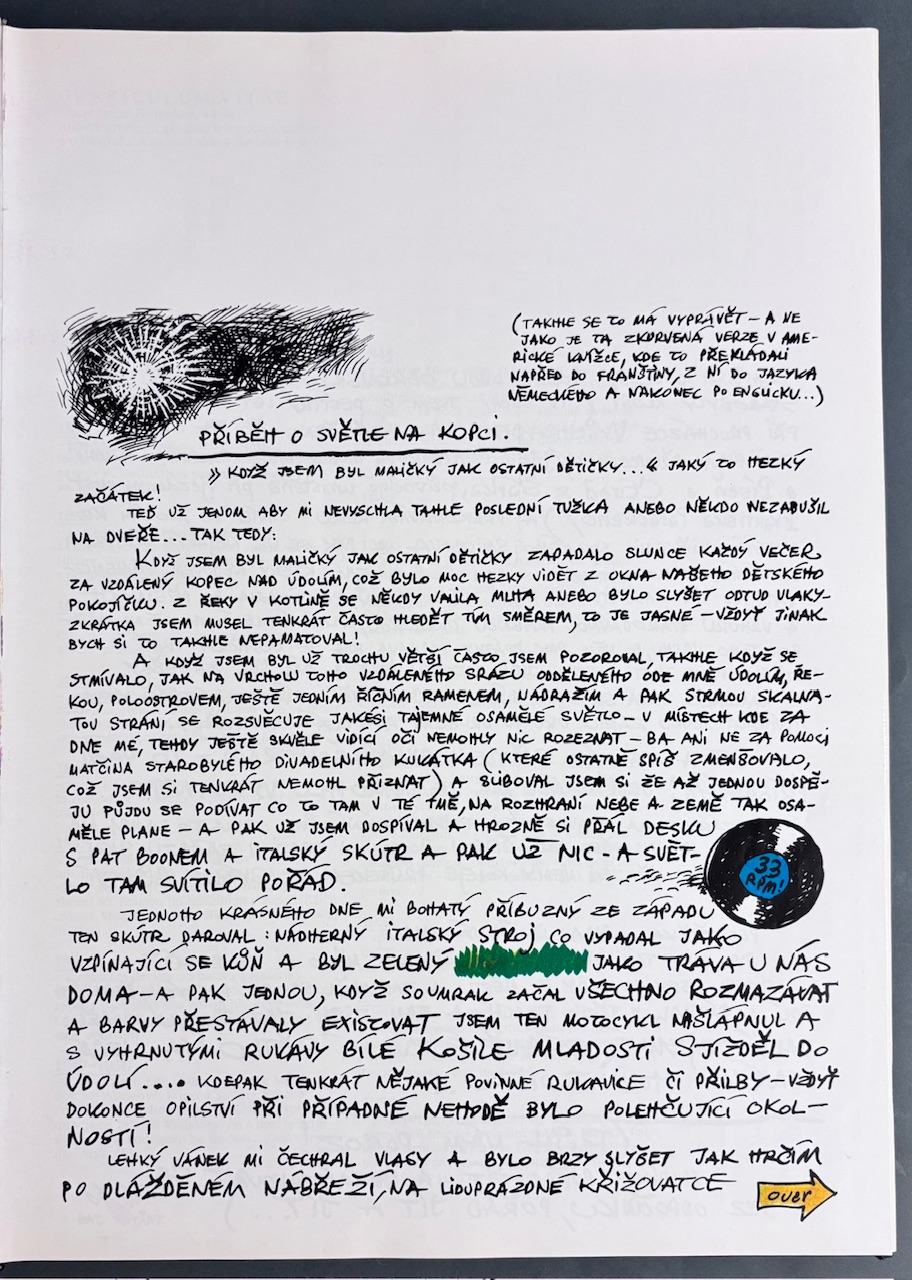 (TAKHLE SE TO MÁ VYPRÁVĚT – A NE
JAKO JE TA ZKURVENÁ VERZE V AME-
RICKÉ KNÍŽCE, KDE TO PŘEKLÁDALI
NAPŘED DO FRANŠTINY, Z NÍ DO JAZYKA
NĚMECKÉHO A NAKONEC PO ENGLICKU...)
PŘÍBĚH O SVĚTLE NA KOPCI.
» KDYŽ JSEM BYL MALIČKÝ JAK OSTATNÍ DĚTIČKY... « JAKÝ TO HEZKÝ
ZAČÁTEK!
TEĎ UŽ JENOM ABY MI NEVYSCHLA TAHLE POSLEDNÍ TUŽKA ANEBO NĚKDO NEZABUŠIL
NA DVEŘE... TAK TEDY:
KDYŽ JSEM BYL MALIČKÝ JAK OSTATNÍ DĚTIČKY ZAPADALO SLUNCE KAŽDÝ VEČER
ZA VZDÁLENÝ KOPEC NAD ÚDOLÍM, COŽ BYLO MOC HEZKY VIDĚT Z OKNA NAŠEHO DĚTSKÉHO
POKOJÍČKU. Z ŘEKY V KOTLINĚ SE NĚKDY VALILA MLHA ANEBO BYLO SLYŠET ODTUD VLAKY–
ZKRÁTKA JSEM MUSEL TENKRÁT ČASTO HLEDĚT TÍM SMĚREM, TO JE JASNÉ – VŽDYŤ JINAK
BYCH SI TO TAKHLE NEPAMATOVAL!
A KDYŽ JSEM BYL UŽ TROCHU VĚTŠÍ ČASTO JSEM POZOROVAL, TAKHLE KDYŽ SE
STMÍVALO, JAK NA VRCHOLU TOHO VZDÁLENÉHO SRÁZU ODDĚLENÉHO ODE MNĚ ÚDOLÍM, ŘE-
KOU, POLOOSTROVEM, JEŠTĚ JEDNÍM ŘÍČNÍM RAMENEM, NÁDRAŽÍM A PAK STRMOU SKALNA-
TOU STRÁNÍ SE ROZSVĚCUJE JAKÉSI TAJEMNÉ OSAMĚLÉ SVĚTLO – V MÍSTECH KDE ZA
DNE MÉ, TEHDY JEŠTĚ SKVĚLE VIDÍCÍ OČI NEMOHLY NIC ROZEZNAT – BA ANI NE ZA POMOCI
MATČINA STAROBYLÉHO DIVADELNÍHO KUKÁTKA (KTERÉ OSTATNĚ SPÍŠ ZMENŠOVALO,
COŽ JSEM SI TENKRÁT NEMOHL PŘIZNAT) A SLIBOVAL JSEM SI ŽE AŽ JEDNOU DOSPĚ-
JU PŮJDU SE PODÍVAT CO TO TAM V TÉ TMĚ, NA ROZHRANÍ NEBE A ZEMĚ TAK OSA-
MĚLE PLANE – A PAK UŽ JSEM DOSPÍVAL A HROZNĚ SI PŘÁL DESKU
S PAT BOONEM A ITALSKÝ SKÚTR A PAK UŽ NIC – A SVĚT-
LO TAM SVÍTILO POŘÁD.
33
RPM!
JEDNOHO KRÁSNÉHO DNE MI BOHATÝ PŘÍBUZNÝ ZE ZÁPADU
TEN SKÚTR DAROVAL: NÁDHERNÝ ITALSKÝ STROJ CO VYPADAL JAKO
VZPÍNAJÍCÍ SE KŮŇ A BYL ZELENÝ JAKO TRÁVA U NÁS
DOMA – A PAK JEDNOU, KDYŽ SOUMRAK ZAČAL VŠECHNO ROZMAZÁVAT
A BARVY PŘESTÁVALY EXISTOVAT JSEM TEN MOTOCYKL NAŠLÁPNUL A
S VYHRNUTÝMI RUKÁVY BÍLÉ KOŠILE MLADOSTI SJÍŽDĚL DO
ÚDOLÍ.... KDEPAK TENKRÁT NĚJAKÉ POVINNÉ RUKAVICE ČI PŘILBY – VŽDYŤ
DOKONCE OPILSTVÍ PŘI PŘÍPADNÉ NEHODĚ BYLO POLEHČUJÍCÍ OKOL-
NOSTÍ!
LEHKÝ VÁNEK MI ČECHRAL VLASY A BYLO BRZY SLYŠET JAK HRČÍM
PO DLÁŽDĚNÉM NÁBŘEŽÍ, NA LIDUPRÁZDNÉ KŘIŽOVATCE
OVER